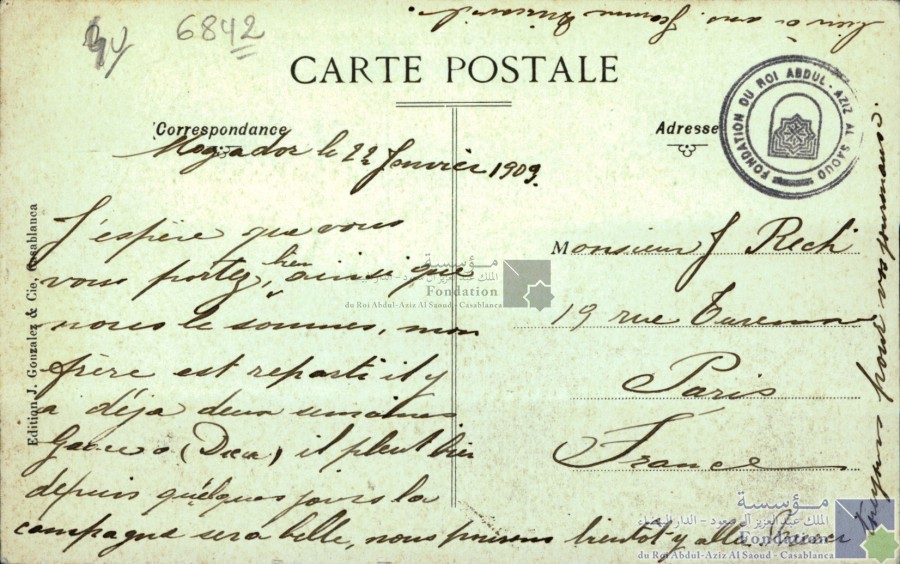 6842
CARTE POSTALE
Correspondance
Adresse
FONDATION DU ROI ABDUL-AZIZ AL SAOUD
Mogador le 22 Janvier 1909.
J'espère que vous
vous portez bien, ainsi que
nous le sommes, mon
frère est reparti il y
a déja deux semaines
(Dieu) il pleut bien
depuis quelques jours la
campagne sera belle, nous pourrons bientôt y aller.
Monsieur J Rech
19 rue Turenne
Paris
France
toujours pour vos
Edition J. Gonzalez & Cie, Casablanca
مؤسسة
الملك عبد العزيز آل سعود - الدار البيضاء
Fondation
du Roi Abdul-Aziz Al Saoud - Casablanca
مؤسسة
الملك عبد العزيز آل سعود - الدار البيضاء
Fondation
du Roi Abdul-Aziz Al Saoud - Casablanca